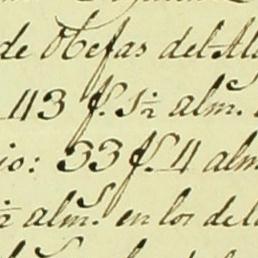 de Refas del Al
43 f. 5½ alm.
io: 33 f. 4 alm
½ alm. en los de l